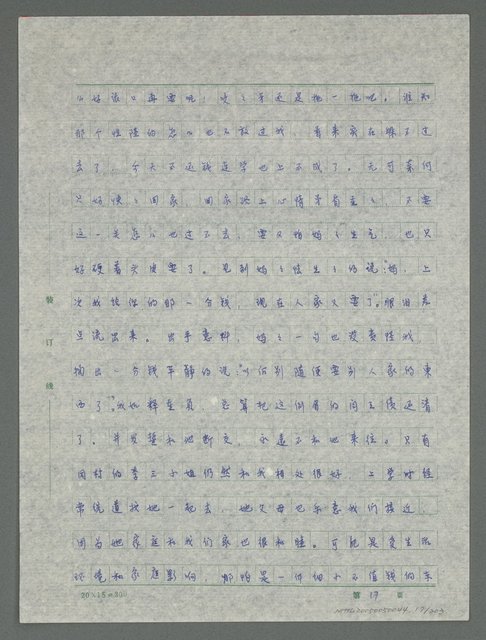 心好家口再要呢！史之牙还是拖一拖吧。谁知
那个性陆的怎么也不放过我，看来实在躲不过
去了，今天不还钱连学也上不成了。无可奈何
只好快之回家，回家路上心情矛盾重之，不要
这一关怎么也过不去，要又怕妈之生气，也只
好硬着头皮要了。见到妈之怯生之的说：妈，上
次我该你的那一分钱，现在人家又要了"眼泪差
点流出来。出乎意料，妈之一句也没责怪我
掏出一分钱平静的说："以后别随便要别人家的东
西了"。我如释重负，总算把这倒霉的阎王债还清
了。并发誓和她断交，永远不和她来往。只有
同村的李三小姐仍然和我相处很好，上学时经
常绕道找她一起去，她父母也乐意我们接近，
因为她家庭和我们家也很和睦。可能是受生活
环境和家庭影响，哪怕是一件细小不值钱的东
装订线
20×15=300
第 17 页
17/203